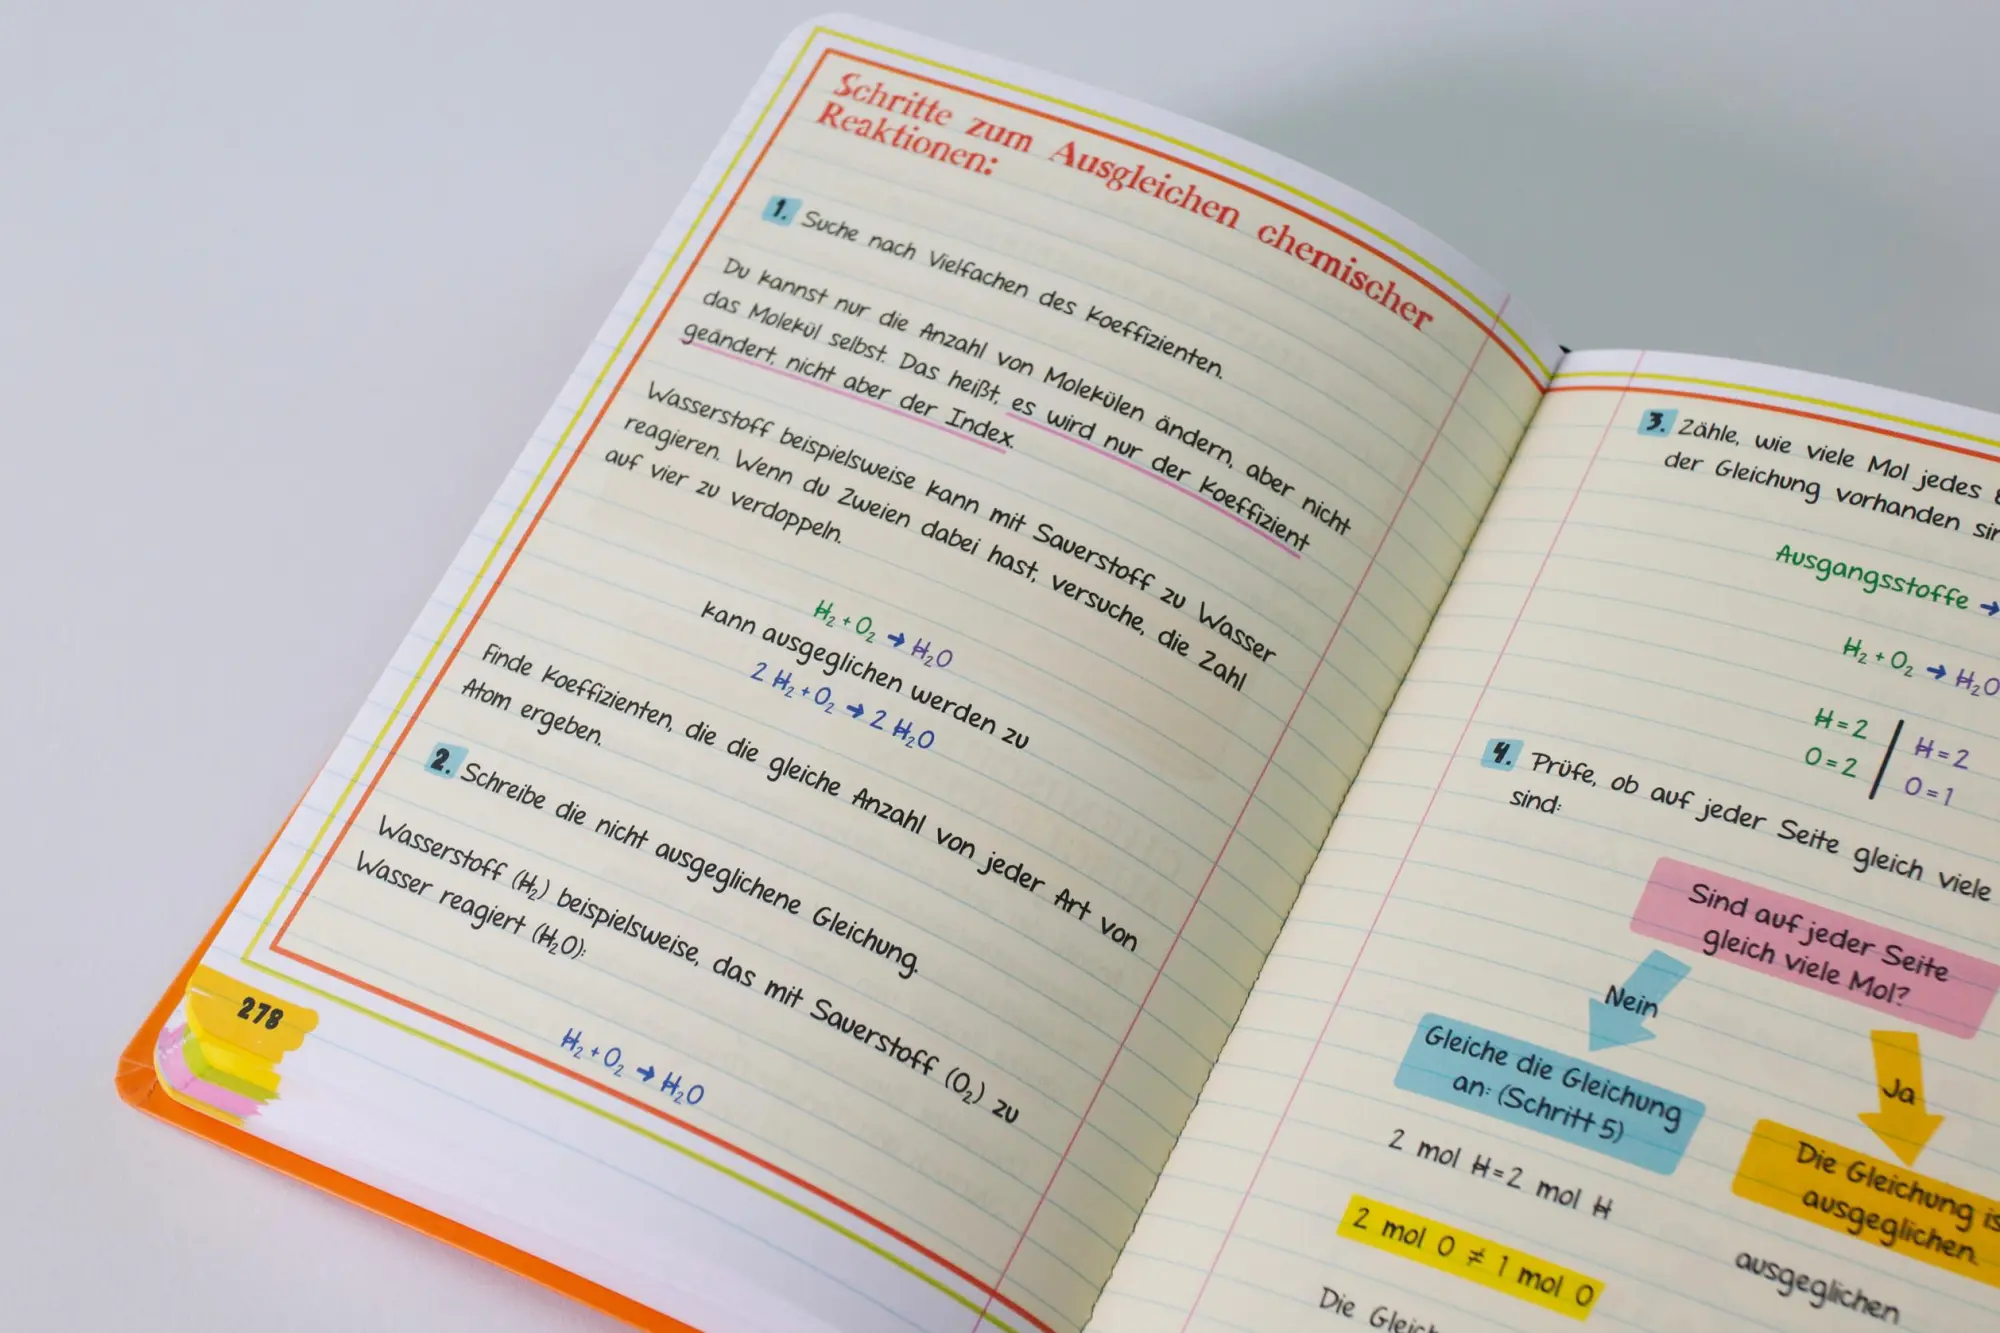 Schritte zum Ausgleichen chemischer
Reaktionen:
1. Suche nach Vielfachen des Koeffizienten.
Du kannst nur die Anzahl von Molekülen ändern, aber nicht
das Molekül selbst. Das heißt, es wird nur der Koeffizient
geändert, nicht aber der Index.
Wasserstoff beispielsweise kann mit Sauerstoff zu Wasser
reagieren. Wenn du Zweien dabei hast, versuche, die Zahl
auf vier zu verdoppeln.
H₂ + O₂ → H₂O
kann ausgeglichen werden zu
2 H₂ + O₂ → 2 H₂O
Finde Koeffizienten, die die gleiche Anzahl von jeder Art von
Atom ergeben.
2. Schreibe die nicht ausgeglichene Gleichung.
Wasserstoff (H₂) beispielsweise, das mit Sauerstoff (O₂) zu
Wasser reagiert (H₂O):
H₂ + O₂ → H₂O
278
3. Zähle, wie viele Mol jedes
der Gleichung vorhanden
Ausgangsstoffe →
H₂ + O₂ → H₂O
H = 2 | H = 2
O = 2 | O = 1
4. Prüfe, ob auf jeder Seite gleich viele
sind:
Sind auf jeder Seite
gleich viele Mol?
Nein
Ja
Gleiche die Gleichung
an: (Schritt 5)
Die Gleichung
ausgeglichen.
2 mol H = 2 mol H
ausgeglichen
2 mol O ≠ 1 mol O
Die